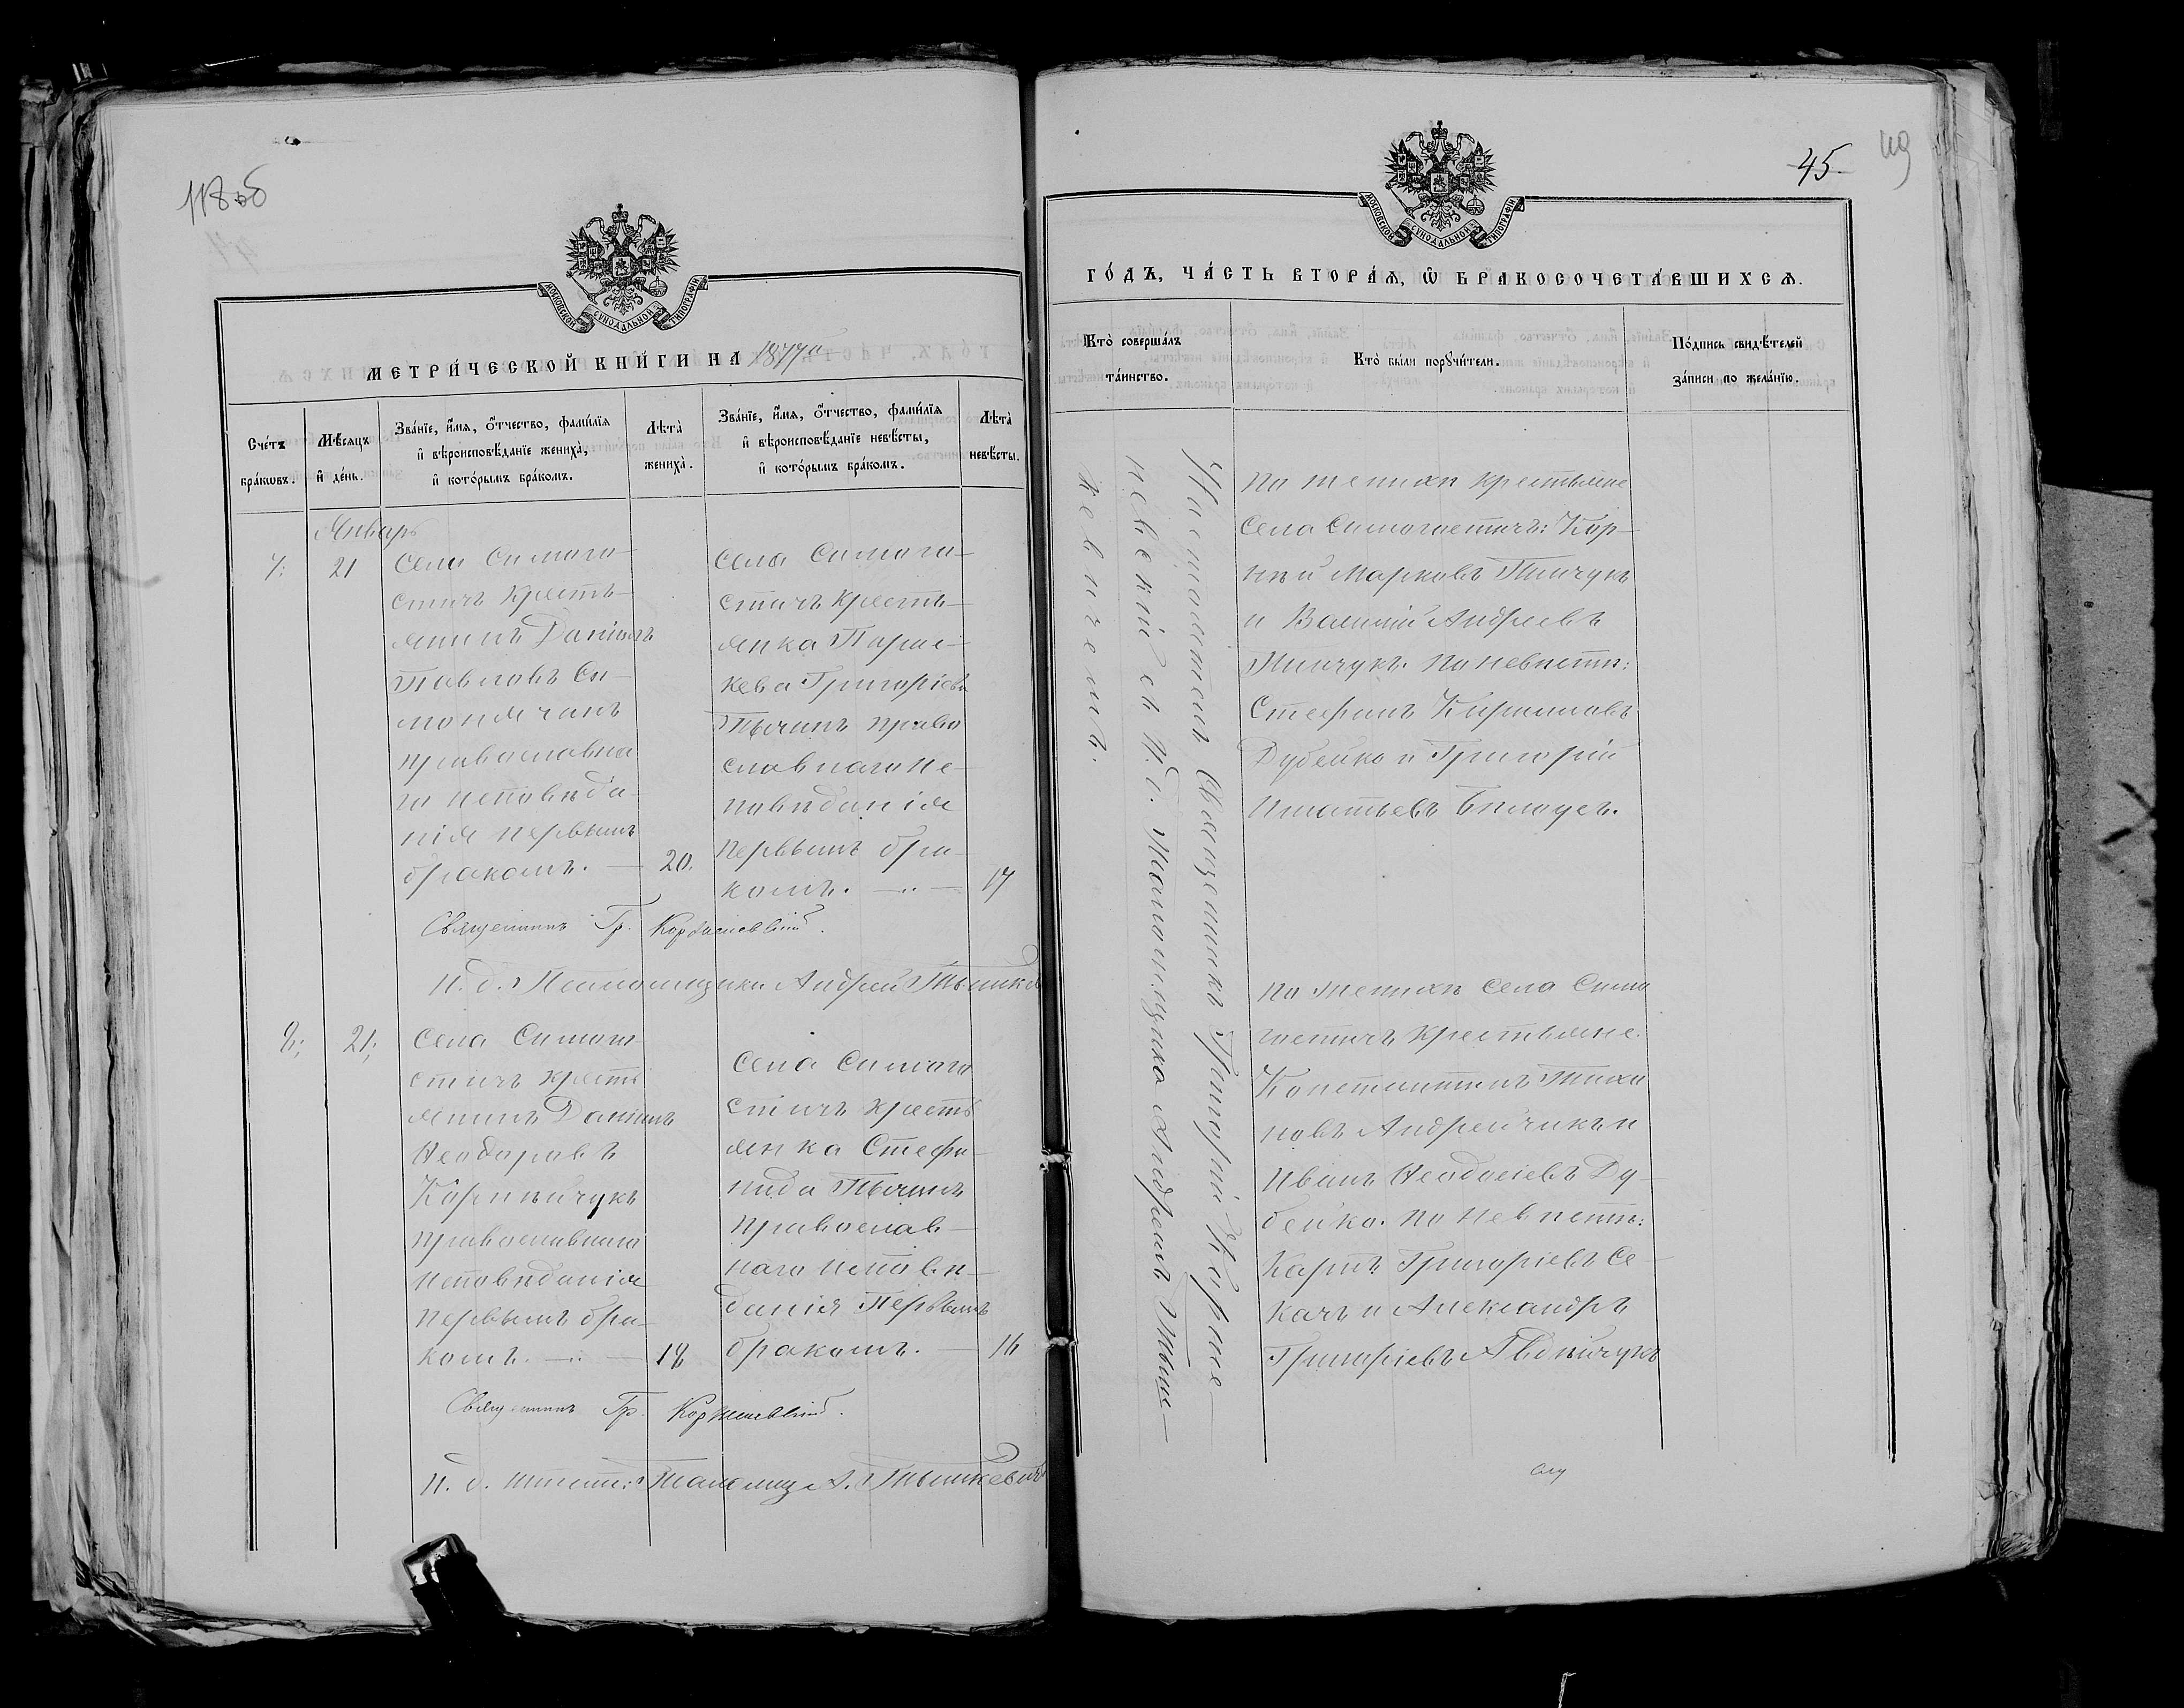 118 об
МОСКОВСКОЙ СѴНОДАЛЬНОЙ ТИПОГРАФІИ
МЕТРИ́ЧЕСКОЙ КНИ́ГИ НА 1877й
Сче́тъ бра́кѡвъ.
Мѣ́сяцъ и҆ де́нь.
Зва́нїе, и҆́мѧ, ѻ҆́тчество, фамѝлїѧ
и҆ вѣроисповѣ́данїе жениха̀,
и҆ кото́рымъ бра́комъ.
Лѣта̀ жениха̀.
Зва́нїе, и҆́мѧ, ѻ҆́тчество, фамѝлїѧ
и҆ вѣроисповѣ́данїе невѣ́сты,
и҆ кото́рымъ бра́комъ.
Лѣта̀ невѣ́сты.
Январь
7. 21
Села Симоно-
стичъ Кресть-
янинъ Даніилъ
Павловъ Си-
монячанъ
православна
го исповѣда-
нія первымъ
бракомъ. — 20.
Села
стичъ Кресть-
янка Парас-
кева Григоріева
Тычинъ право
славнаго ис-
повѣданія
первымъ бра-
комъ. — 17
Священникъ Гр.
И. д. Псаломщика Андрей Тышке
8; 21;
Села
стичъ Кресть
янинъ Даніилъ
Ѳеодоровъ
Корнѣйчукъ
православнаго
исповѣданія
первымъ бра-
комъ. — 18
Села
стичъ Кресть
янка Стефа-
нида Тычинъ
православ-
наго исповѣ-
данія первымъ
бракомъ. — 16
Священникъ Гр.
И. д. Псаломщ. А. Тышкевичъ
45.
119
МОСКОВСКОЙ СѴНОДАЛЬНОЙ ТИПОГРАФІИ
ГО́ДЪ, ЧА́СТЬ ВТОРА́Ѧ, Ѡ҆ БРАКОСОЧЕТА́ВШИХСѦ.
Кто̀ соверша́лъ
та́инство.
Кто̀ бы́ли порꙋчи́тели.
По́дпись свидѣ́телей
за́писи по жела́нїю.
Настоятель Священникъ Григорій Корже-
невскій съ И. д. Псаломщика Андреемъ Тыш-
кевичемъ.
По женихѣ крестьяне
села Кор-
нѣй Марковъ Тинчукъ
и Василій Андреевъ
Тинчукъ. По невѣстѣ:
Стефанъ Кириловъ
Дубейко и Григорій
Игнатьевъ Билоусъ.
По женихѣ села
крестьяне:
Константинъ Тихо
новъ Андрейчикъ и
Иванъ Ѳеодосіевъ Ду-
бейко. По невѣстѣ:
Карпъ Григоріевъ Се-
качъ и Александръ
Григоріевъ